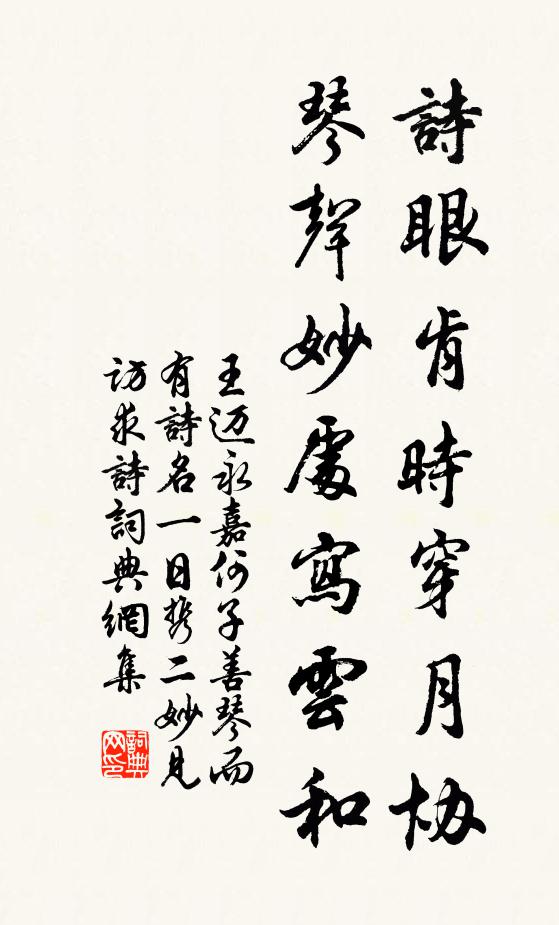 詩眼肯時穿月协
琴聲妙處寫雲和
王迈永嘉何子善琴而
有詩名一日携二妙見
訪求詩詞典網集
詞典
网印